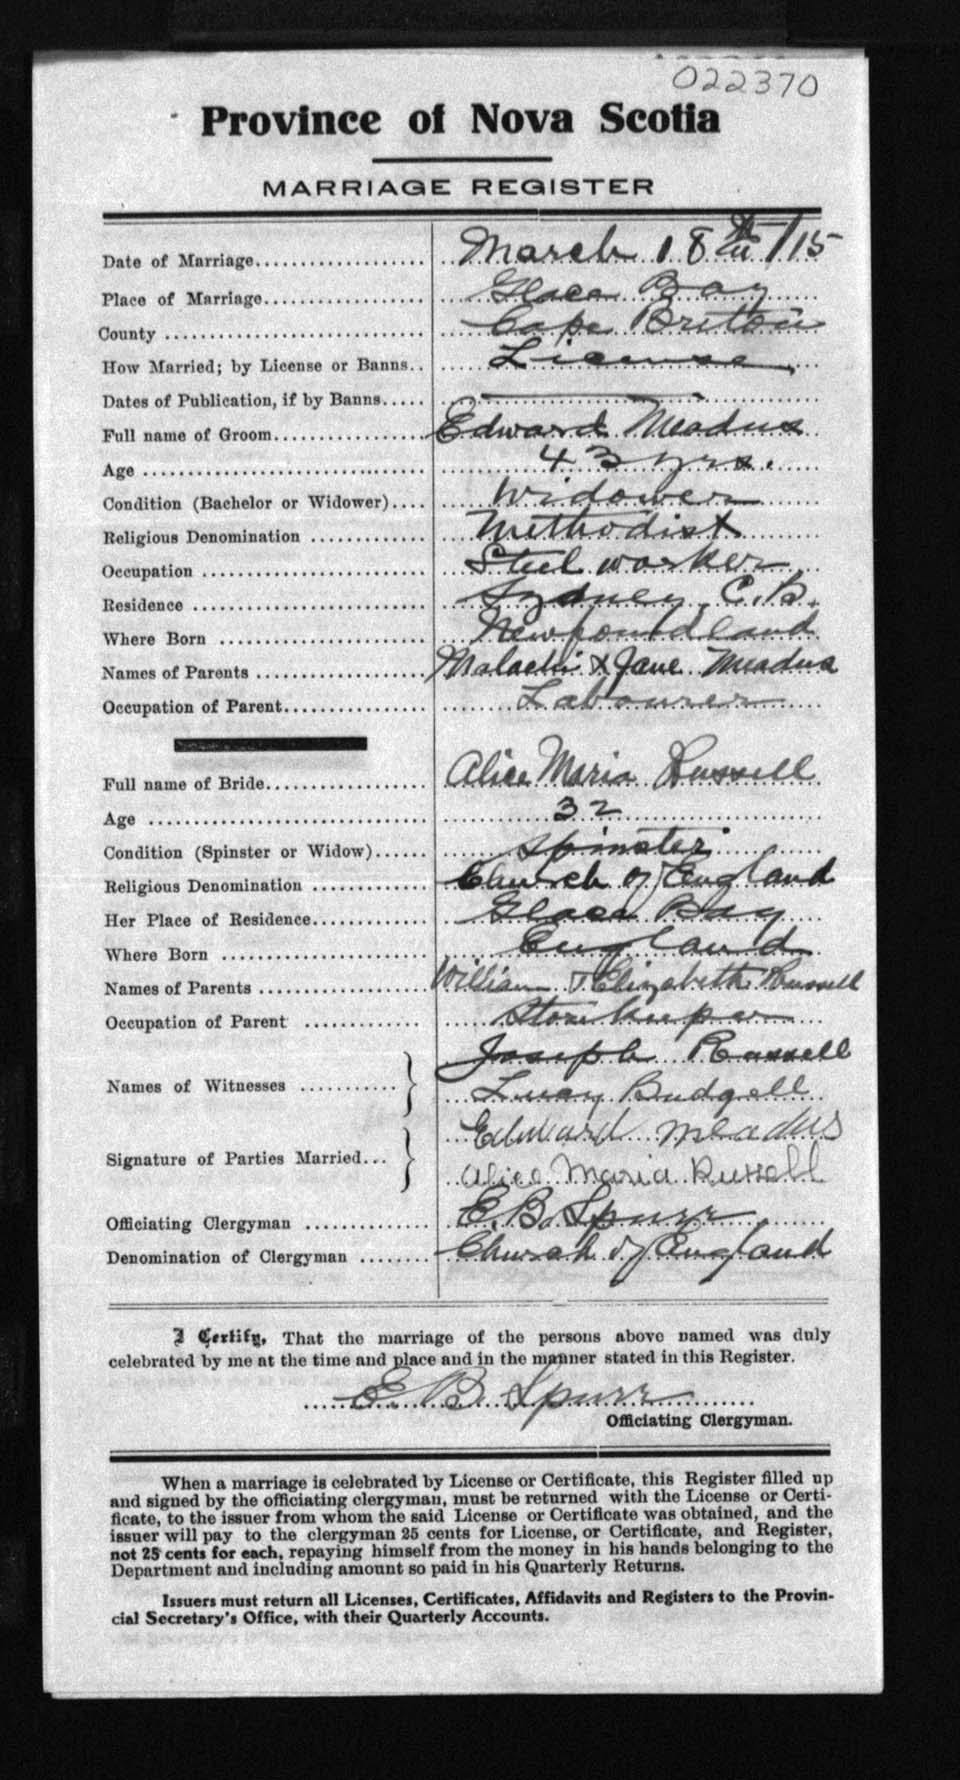 022370
Province of Nova Scotia
MARRIAGE REGISTER
Date of Marriage................... March 18th/15
Place of Marriage.................. Glace Bay
County ............................ Cape Breton
How Married; by License or Banns.. License
Dates of Publication, if by Banns..... ———
Full name of Groom................ Edward Meadus
Age .............................. 43 yrs.
Condition (Bachelor or Widower).... Widower
Religious Denomination ............ Methodist
Occupation ........................ Steel worker
Residence ......................... Sydney C.B.
Where Born ....................... Newfoundland
Names of Parents .................. Malachi & Jane Meadus
Occupation of Parent............... Labourer
Full name of Bride................. Alice Maria Russell
Age .............................. 32
Condition (Spinster or Widow)...... Spinster
Religious Denomination ............ Church of England
Her Place of Residence............. Glace Bay
Where Born ....................... England
Names of Parents .................. William & Elizabeth Russell
Occupation of Parent ............. Storekeeper
Names of Witnesses ........... } Joseph Russell
Lucy Budgell
Signature of Parties Married... } Edward Meadus
Alice Maria Russell
Officiating Clergyman ............. E. B. Spurr
Denomination of Clergyman ........ Church of England
I Certify, That the marriage of the persons above named was duly
celebrated by me at the time and place and in the manner stated in this Register.
E. B. Spurr
Officiating Clergyman.
When a marriage is celebrated by License or Certificate, this Register filled up
and signed by the officiating clergyman, must be returned with the License or Certi-
ficate, to the issuer from whom the said License or Certificate was obtained, and the
issuer will pay to the clergyman 25 cents for License, or Certificate, and Register,
not 25 cents for each, repaying himself from the money in his hands belonging to the
Department and including amount so paid in his Quarterly Returns.
Issuers must return all Licenses, Certificates, Affidavits and Registers to the Provin-
cial Secretary's Office, with their Quarterly Accounts.